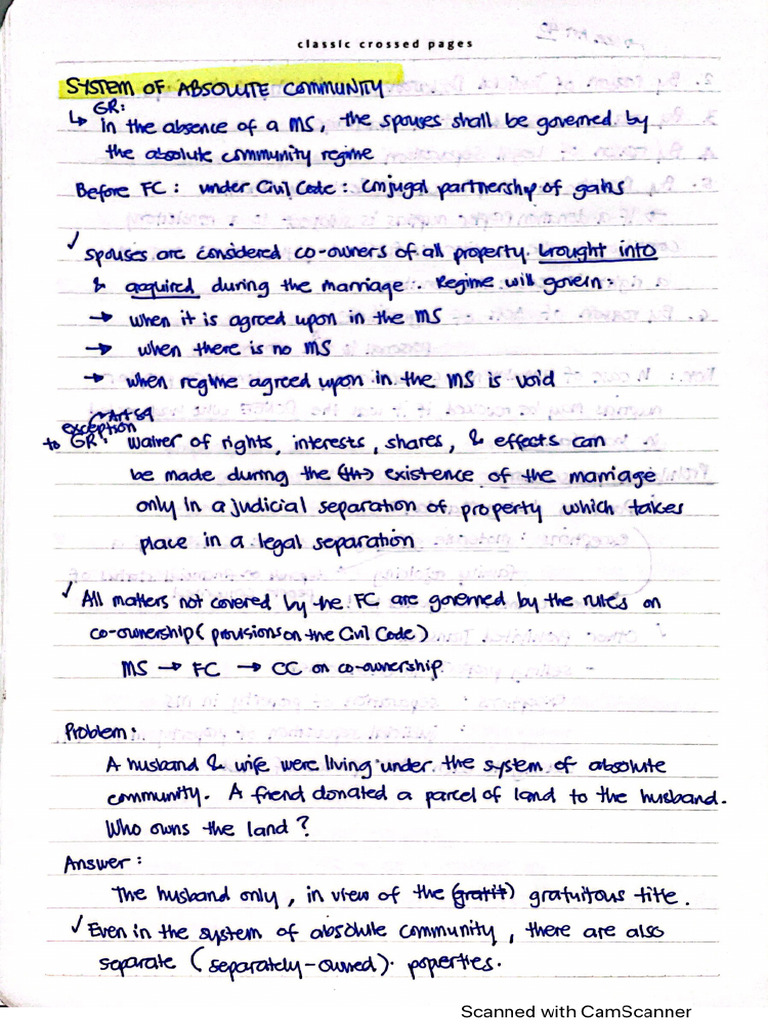 classic crossed pages
SYSTEM OF ABSOLUTE COMMUNITY
GR:
↳ in the absence of a MS, the spouses shall be governed by
the absolute community regime
Before FC: under Civil Code: Conjugal partnership of gains
✓ spouses are considered co-owners of all property brought into
& acquired during the marriage. Regime will govern:
→ when it is agreed upon in the MS
→ when there is no MS
→ when regime agreed upon in the MS is void
Art 89
exception
to GR: waiver of rights, interests, shares, & effects can
be made during the (th) existence of the marriage
only in a judicial separation of property which takes
place in a legal separation
✓ All matters not covered by the FC are governed by the rules on
co-ownership (provisions on the Civil Code)
MS → FC → CC on co-ownership.
Problem:
A husband & wife were living under the system of absolute
community. A friend donated a parcel of land to the husband.
Who owns the land?
Answer:
The husband only, in view of the (gratit) gratuitous title.
✓ Even in the system of absolute community, there are also
separate (separately-owned) poperties.
Scanned with CamScanner